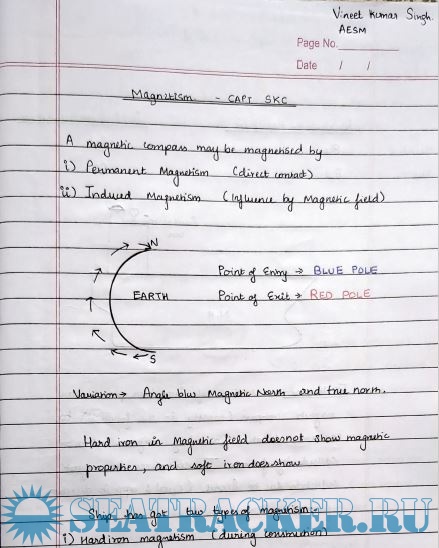 Vineet Kumar Singh.
AESM
Page No.
Date / /
Magnetism - CAPT SKC
A magnetic compass may be magnetised by
i) Permanent Magnetism (direct contact)
ii) Induced Magnetism (Influence by Magnetic field)
N
Point of Entry → BLUE POLE
EARTH
Point of Exit → RED POLE
S
Variation → Angle b/w Magnetic North and true norm.
Hard iron in Magnetic field doesnot show magnetic
properties, and soft iron does show
Ship has got two types of magnetism:-
i) Hard iron magnetism (during construction)
SEATRACKER.RU